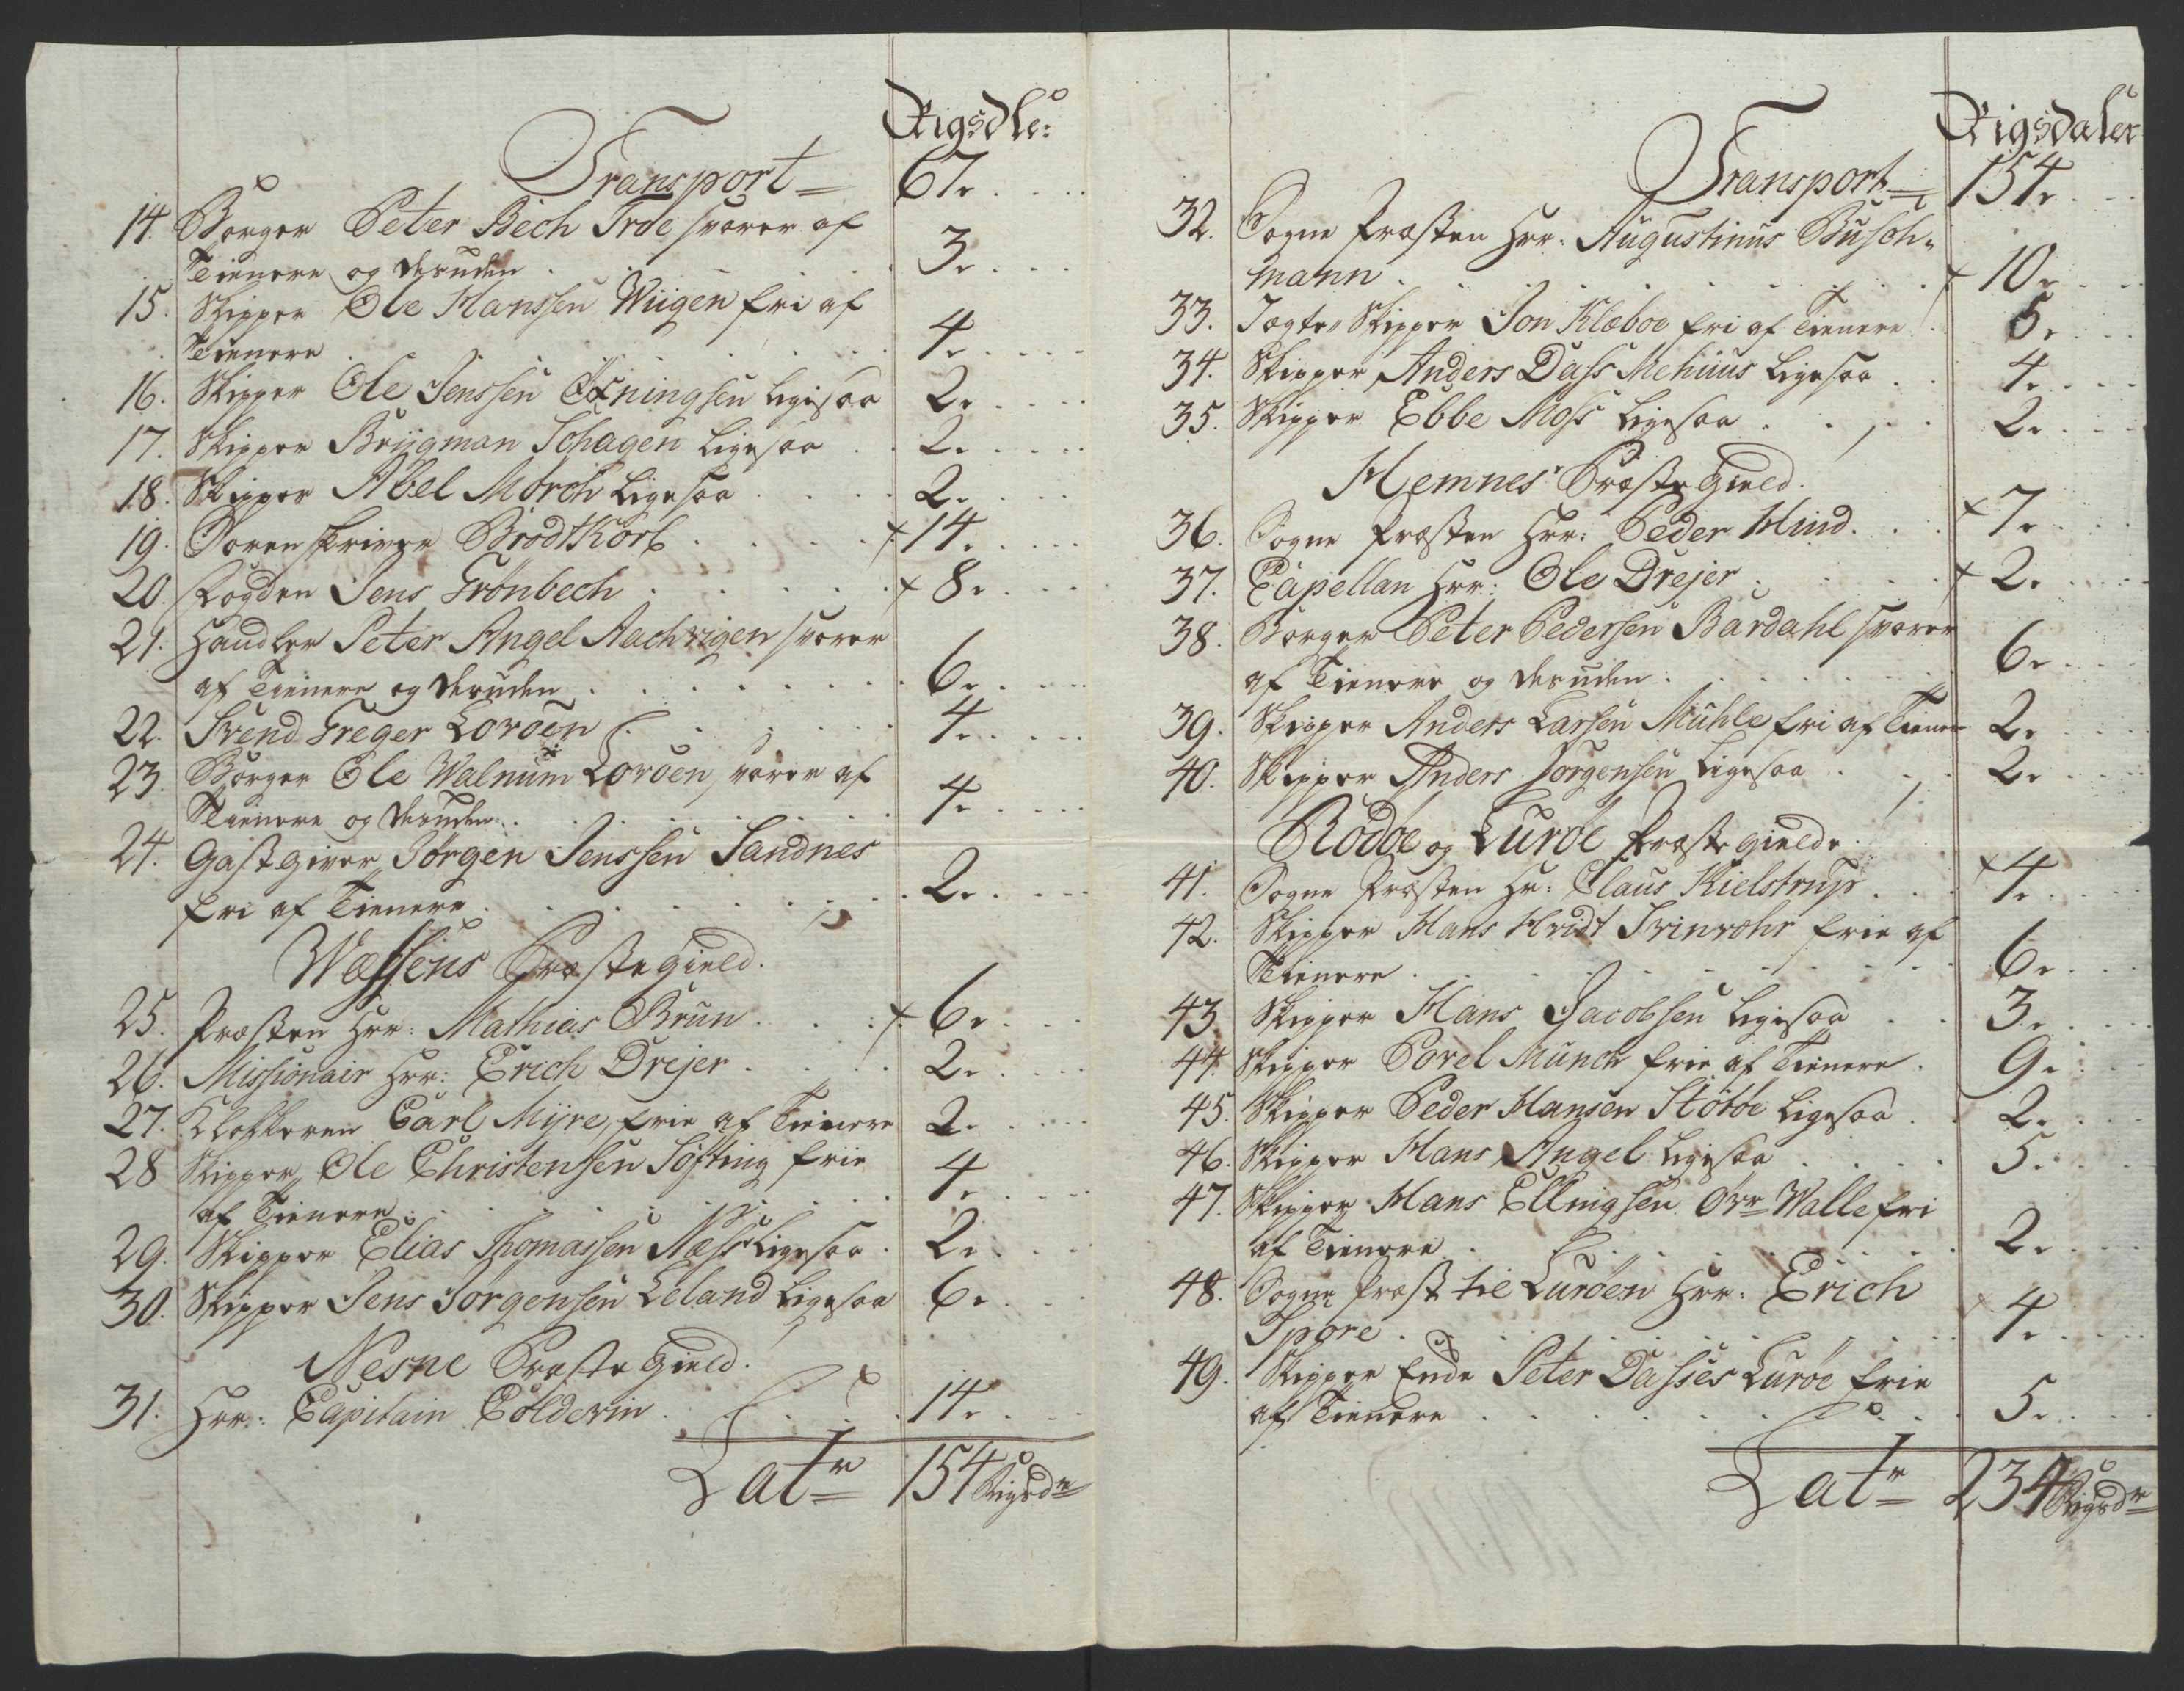 Rigsdlr:
Transport 67.
14. Borger Peter Bech Troe svarer af
Tienere og desuden 3.
15. Skipper Ole Hanssen Wiigen fri af
Tienere 4.
16. Skipper Ole Jenssen Øxningsen ligesaa 2.
17. Skipper Brygman Schagen ligesaa 2.
18. Skipper Abel Mørch ligesaa 2.
19. Sorenskriver BrodtKorb 14.
20. Fogden Jens Grønbech 8.
21. Handler Peter Angel Aachvigen svarer
af Tienere og desuden 6.
22. Svend Greger Lovøen 4.
23. Borger Ole Walnum Lovøen svarer af
Tienere og desuden 4.
24. Gastgiver Jørgen Jenssen Sandnes
fri af Tienere 2.
Wefsens Præstegield.
25. Præsten Hrr: Mathias Brun 6.
26. Missionair Hrr: Erich Drejer 2.
27. Klokkeren Carl Myre, frie af Tienere 2.
28 Skipper Ole Christensen Søfting frie
af Tienere 4.
29. Skipper Elias Thomassen Næss ligesaa 2.
30. Skipper Jens Jørgensen Leland ligesaa 6.
Nesne Præstegield.
31. Hrr: Capitain Coldevin 14.
Latr 154 Rigsdr
Rigsdaler
Transport 154.
32. Sogne Præsten Hrr: Augustinus Busch-
mann 10.
33. Jægte Skipper Jon Klæboe fri af Tienere 5.
34. Skipper Anders Dass Mehuus ligesaa 4.
35. Skipper Ebbe Moss ligesaa 2.
Hemnes Præstegield.
36. Sogne Præsten Hrr: Peder Hind 7.
37. Capellan Hrr: Ole Drejer 2.
38. Borger Peter Pedersen Bardahl svarer
af Tienere og desuden 6.
39. Skipper Anders Larsen Mühle fri af Tiener 2.
40. Skipper Anders Jørgensen ligesaa 2.
Rødøe og Lurøe Præstegielde.
41. Sogne Præsten Hr: Claus Kielstrup 4.
42. Skipper Hans Hvidt Svinvohr frie af
Tienere 6.
43 Skipper Hans Jacobsen ligesaa 3.
44. Skipper Povel Munch frie af Tienere 9.
45. Skipper Peder Hansen Støtøe ligesaa 2.
46. Skipper Hans Angel ligesaa 5.
47. Skipper Hans Ellingsen Øvr Walle fri
af Tienere 2.
48. Sogne Præst til Lurøen Hrr: Erich
Spore 4.
49. Skipper Enke Peter Dasses Lurøe frie
af Tienere 5.
Latr 234 Rigsdr